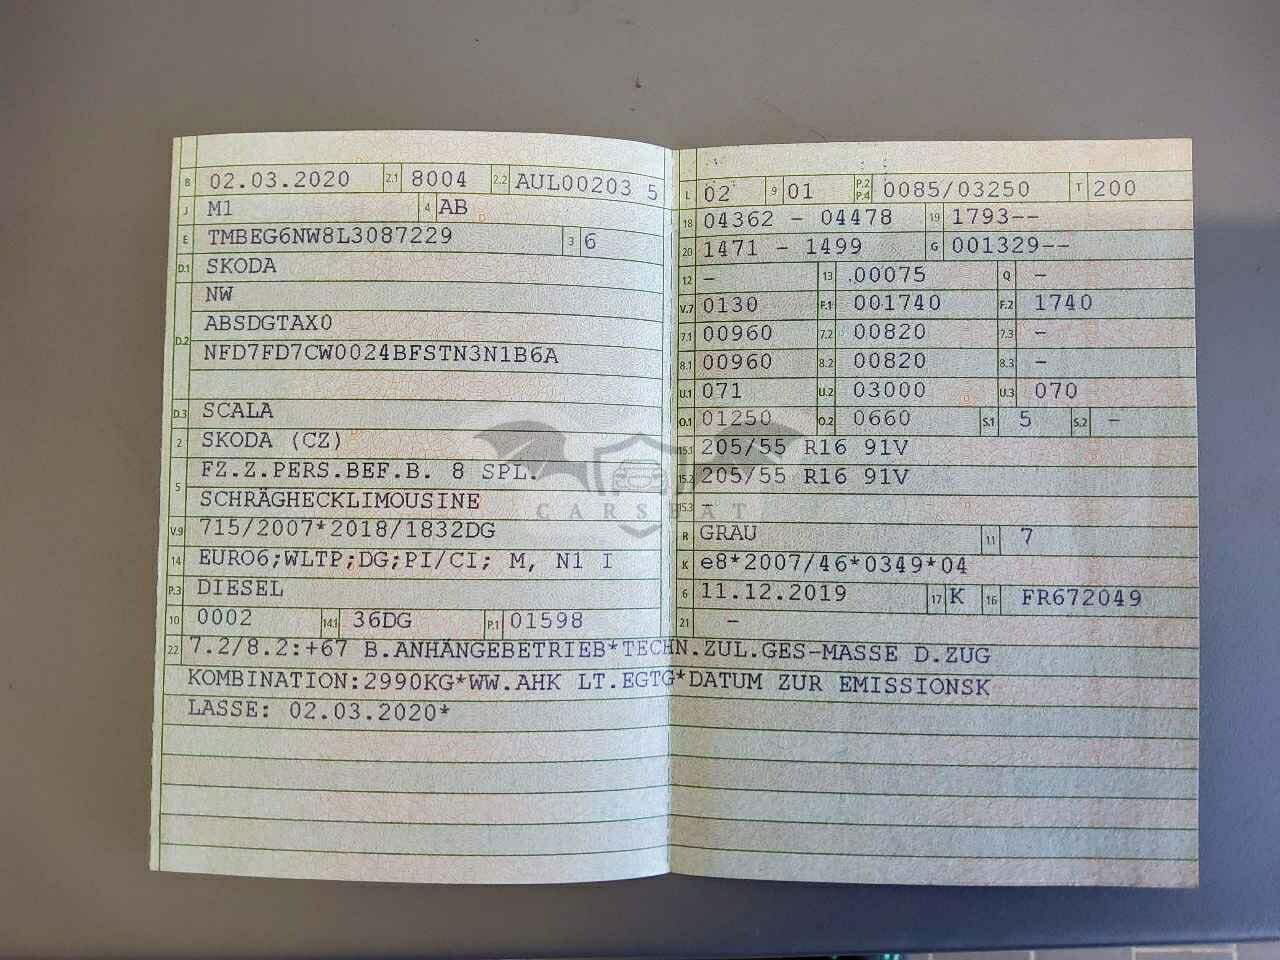 B 02.03.2020 2.1 8004 2.2 AUL00203 5
J M1 4 AB
E TMBEG6NW8L3087229 3 6
D.1 SKODA
NW
D.2 ABSDGTAX0
NFD7FD7CW0024BFSTN3N1B6A
D.3 SCALA
2 SKODA (CZ)
5 FZ.Z.PERS.BEF.B. 8 SPL.
SCHRÄGHECKLIMOUSINE
V.9 715/2007*2018/1832DG
14 EURO6;WLTP;DG;PI/CI; M, N1 I
P.3 DIESEL
10 0002 14.1 36DG P.1 01598
L 02 9 01 P.2 P.4 0085/03250 T 200
18 04362 - 04478 19 1793--
20 1471 - 1499 G 001329--
12 - 13 .00075 Q -
V.7 0130 F.1 001740 F.2 1740
7.1 00960 7.2 00820 7.3 -
8.1 00960 8.2 00820 8.3 -
U.1 071 U.2 03000 U.3 070
O.1 01250 O.2 0660 S.1 5 S.2 -
15.1 205/55 R16 91V
15.2 205/55 R16 91V
15.3 -
R GRAU 11 7
K e8*2007/46*0349*04
6 11.12.2019 17 K 16 FR672049
21 -
22 7.2/8.2:+67 B.ANHÄNGEBETRIEB*TECHN.ZUL.GES-MASSE D.ZUG
KOMBINATION:2990KG*WW.AHK LT.EGTG*DATUM ZUR EMISSIONSK
LASSE: 02.03.2020*